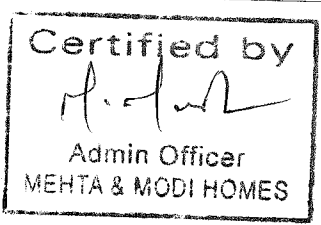 Certified by
Admin Officer
MEHTA & MODI HOMES